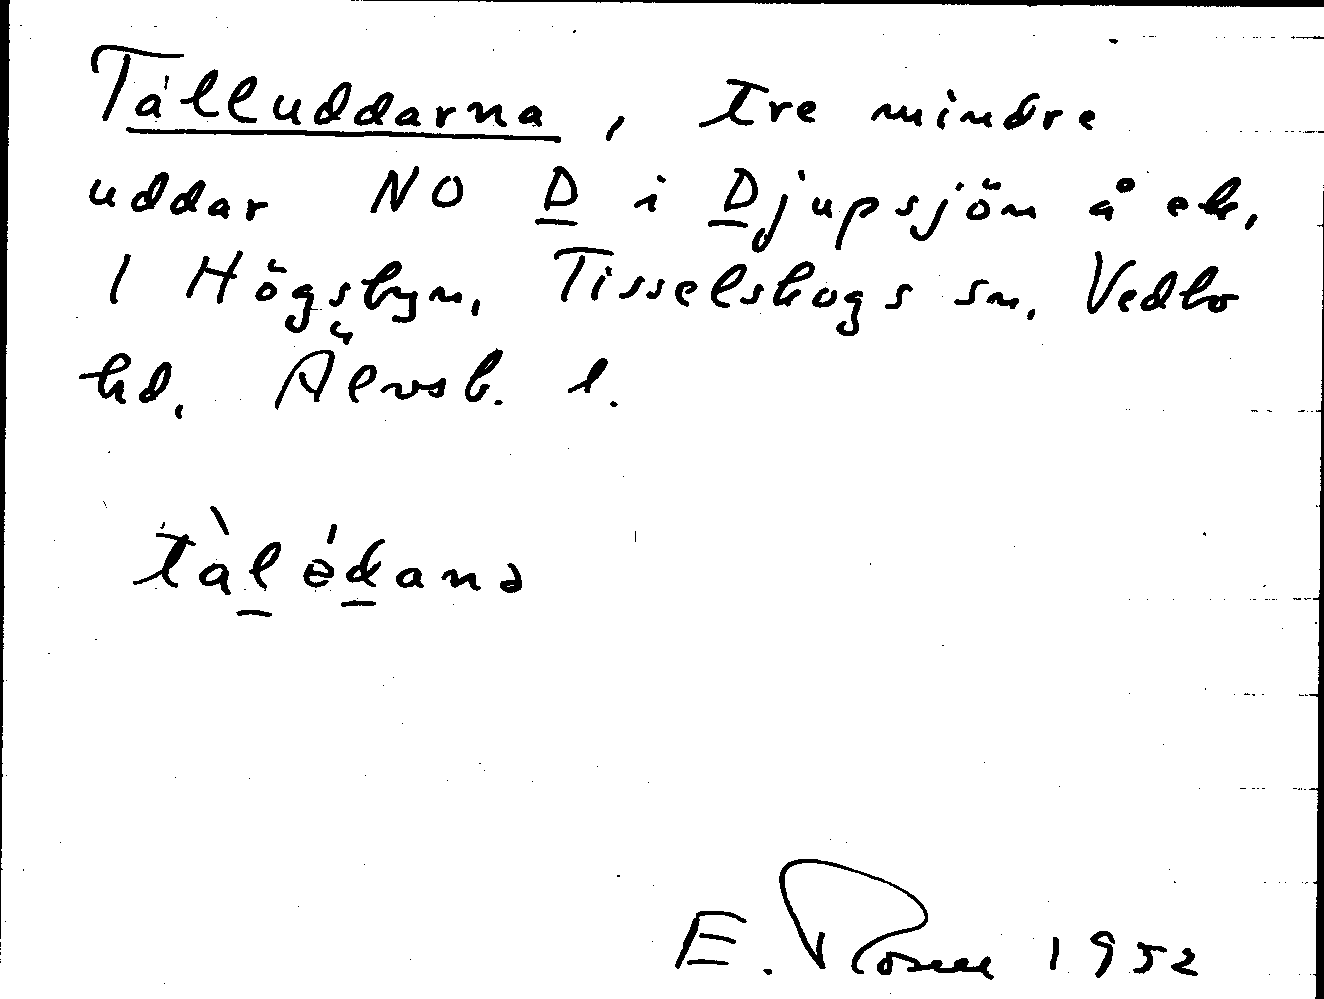 Tålluddarna, tre mindre
uddar NO D i Djupsjön å ek.
1 Högsbyn, Tisselskogs sn, Vedbo
hd, Älvsb. l.
tàlédanə
E. Rosell 1952